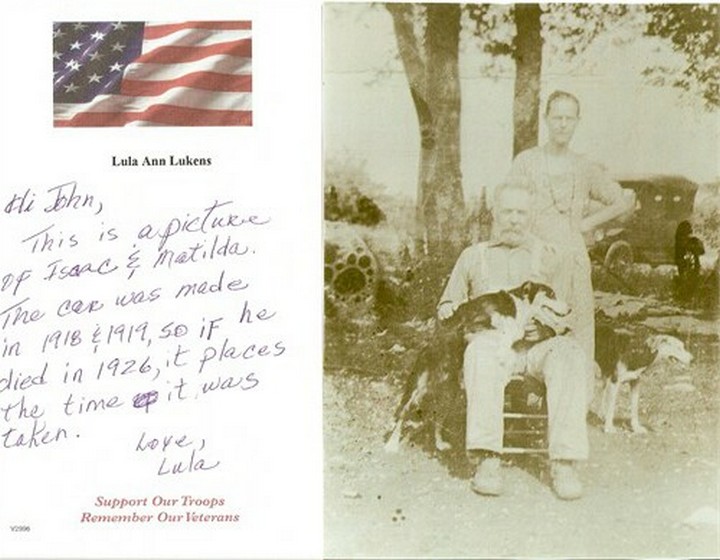 Lula Ann Lukens
Hi John,
This is a picture
of Isaac & Matilda.
The car was made
in 1918 & 1919, so if he
died in 1926, it places
the time it was
taken.
Love,
Lula
Support Our Troops
Remember Our Veterans
V2996